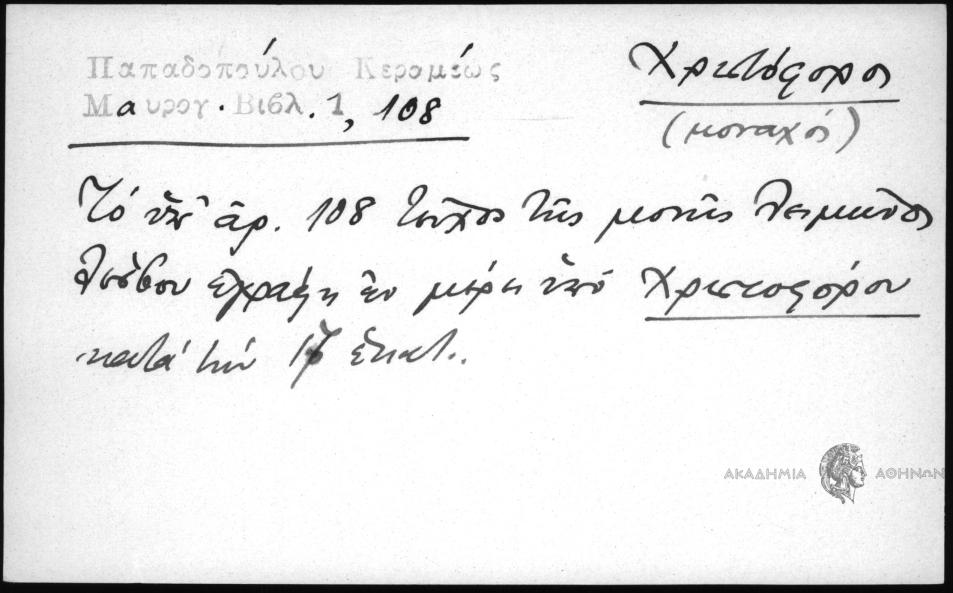 Παπαδοπούλου Κεραμέως
Μαυρογ. Βιβλ. 1, 108
Χριστόφορος
(μοναχός)
Τό ὑπ' ἀρ. 108 τεῦχος τῆς μονῆς Λειμῶνος
Λέσβου ἐγράφη ἐν μέρει ὑπό Χριστοφόρου
κατά τήν ἑκατ..
ΑΚΑΔΗΜΙΑ ΑΘΗΝΩΝ